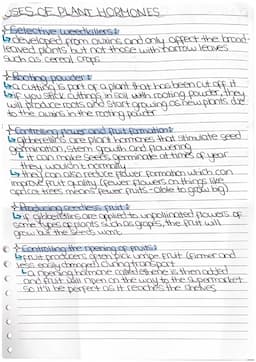 USES OF PLANT HORMONES
Selective weedkillers:
↳ developed from auxins and only affect the broad-
leaved plants but not those with narrow leaves
such as cereal crops
Rooting powder:
↳ a cutting is part of a plant that has been cut off it
↳ if you stick cuttings in soil with rooting powder, they
will produce roots and start growing as new plants due
to the auxins in the rooting powder
Controlling flower and fruit formation:
↳ gibberellins are plant hormones that stimulate seed
germination, stem growth and flowering
↳ it can make seeds germinate at times of year
they wouldn't normally
↳ they can also reduce flower formation which can
improve fruit quality (fewer flowers on things like
apricot trees means fewer fruits - able to grow big)
Producing seedless fruit:
↳ if gibberellins are applied to unpollinated flowers of
some types of plants such as grapes, the fruit will
grow but the seeds won't
Controlling the ripening of fruits:
↳ fruit producers often pick unripe fruit (firmer and
less easily damaged during transport
↳ a ripening hormone called ethene is then added
and fruit will ripen on the way to the supermarket
so it'll be perfect as it reaches the shelves